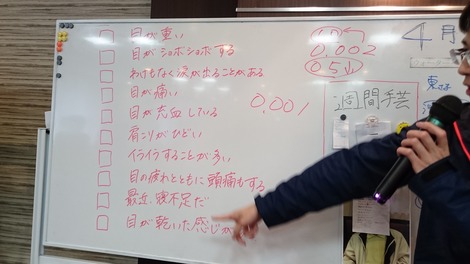 目が重い
目がショボショボする
わけもなく涙が出ることがある
目が痛い
目が充血している
肩こりがひどい
イライラすることが多い
目の疲れとともに頭痛もする
最近、寝不足だ
目が乾いた感じが
1.0
0.002
0.5↓
0.001
4月
週間手芸